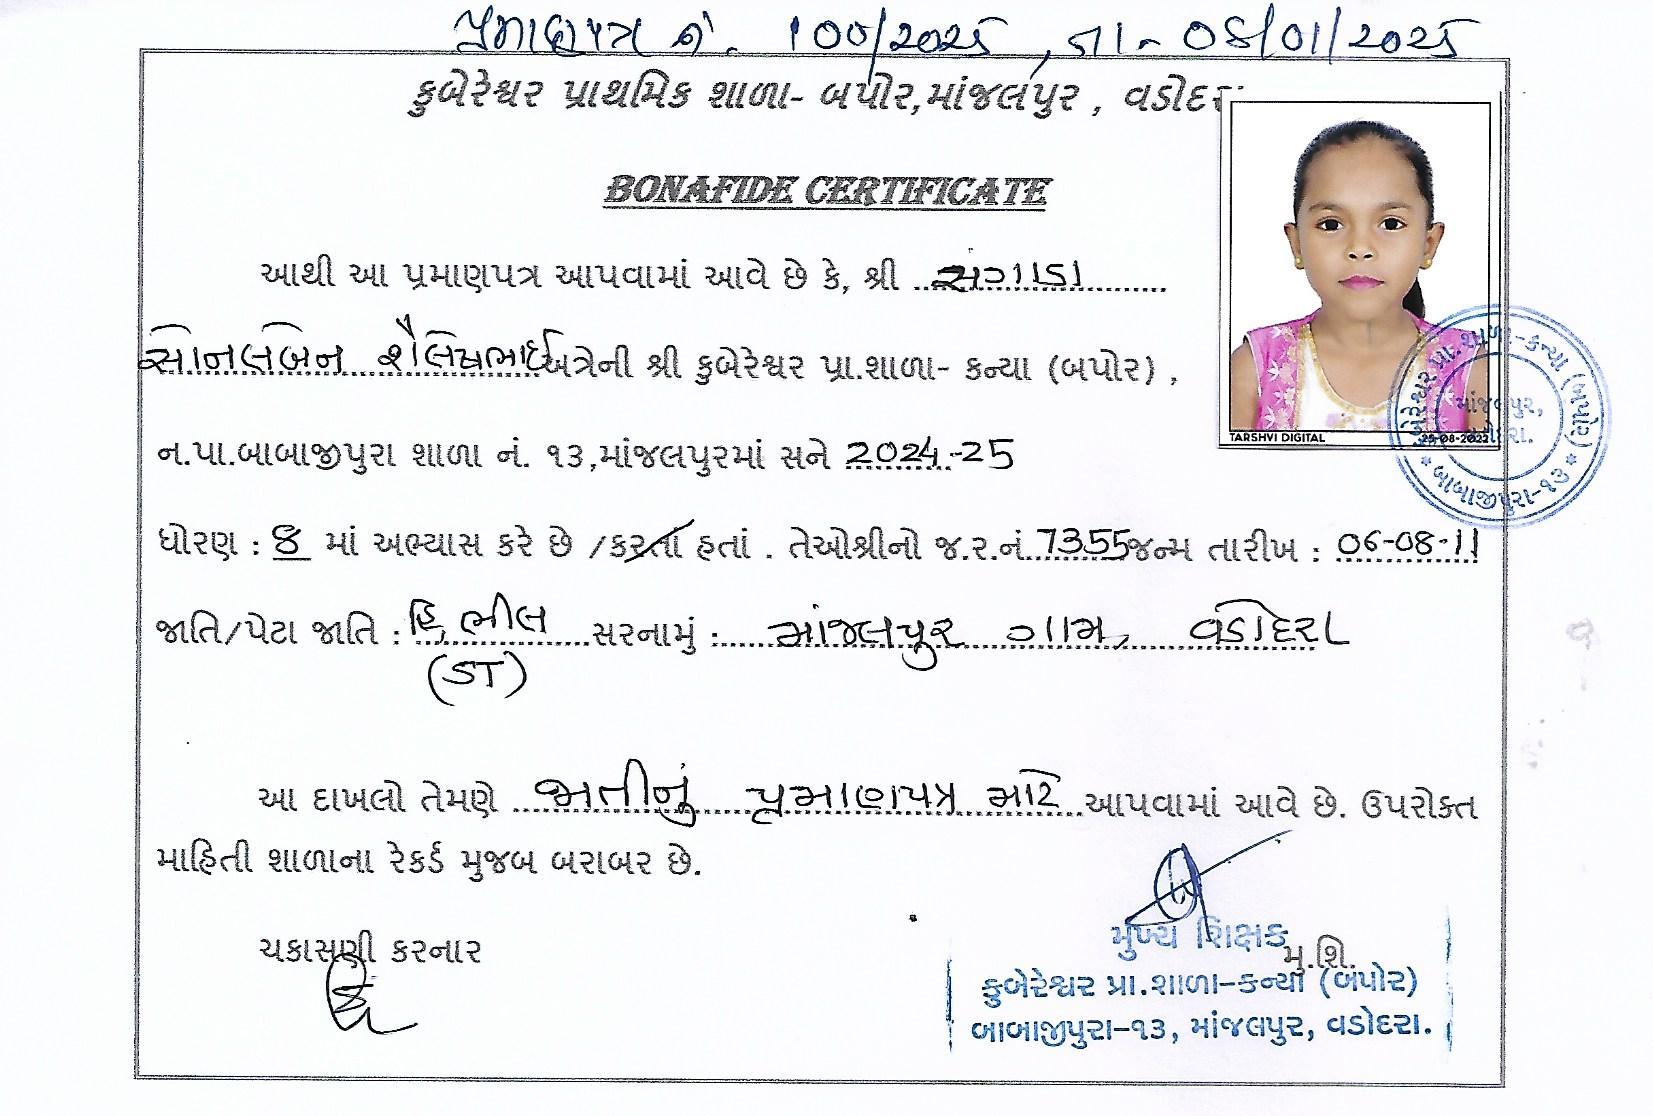 પ્રમાણપત્ર નં. 100/2025, તા- 08/01/2025
કુબેરેશ્વર પ્રાથમિક શાળા- બપોર,માંજલપુર , વડોદરા
BONAFIDE CERTIFICATE
આથી આ પ્રમાણપત્ર આપવામાં આવે છે કે, શ્રી ..સંગાડા............
સોનલબેન શૈલેષભાઈ અત્રેની શ્રી કુબેરેશ્વર પ્રા.શાળા- કન્યા (બપોર) ,
ન.પા.બાબાજીપુરા શાળા નં. ૧૩,માંજલપુરમાં સને 2024-25
ધોરણ : 8 માં અભ્યાસ કરે છે /કરતાં હતાં . તેઓશ્રીનો જ.ર.નં.7355 જન્મ તારીખ : 06-08-11
જાતિ/પેટા જાતિ : હિ. ભીલ સરનામું : માંજલપુર ગામ, વડોદરા
(ST)
આ દાખલો તેમણે જાતીનું પ્રમાણપત્ર માટે આપવામાં આવે છે. ઉપરોક્ત
માહિતી શાળાના રેકર્ડ મુજબ બરાબર છે.
ચકાસણી કરનાર
મુ.શિ.
મુખ્ય શિક્ષક
કુબેરેશ્વર પ્રા.શાળા-કન્યા (બપોર)
બાબાજીપુરા-૧૩, માંજલપુર, વડોદરા.
TARSHVI DIGITAL 25-08-2022
કુબેરેશ્વર પ્રા. શાળા-કન્યા (બપોર) * બાબાજીપુરા-૧૩ *
માંજલપુર,
વડોદરા.